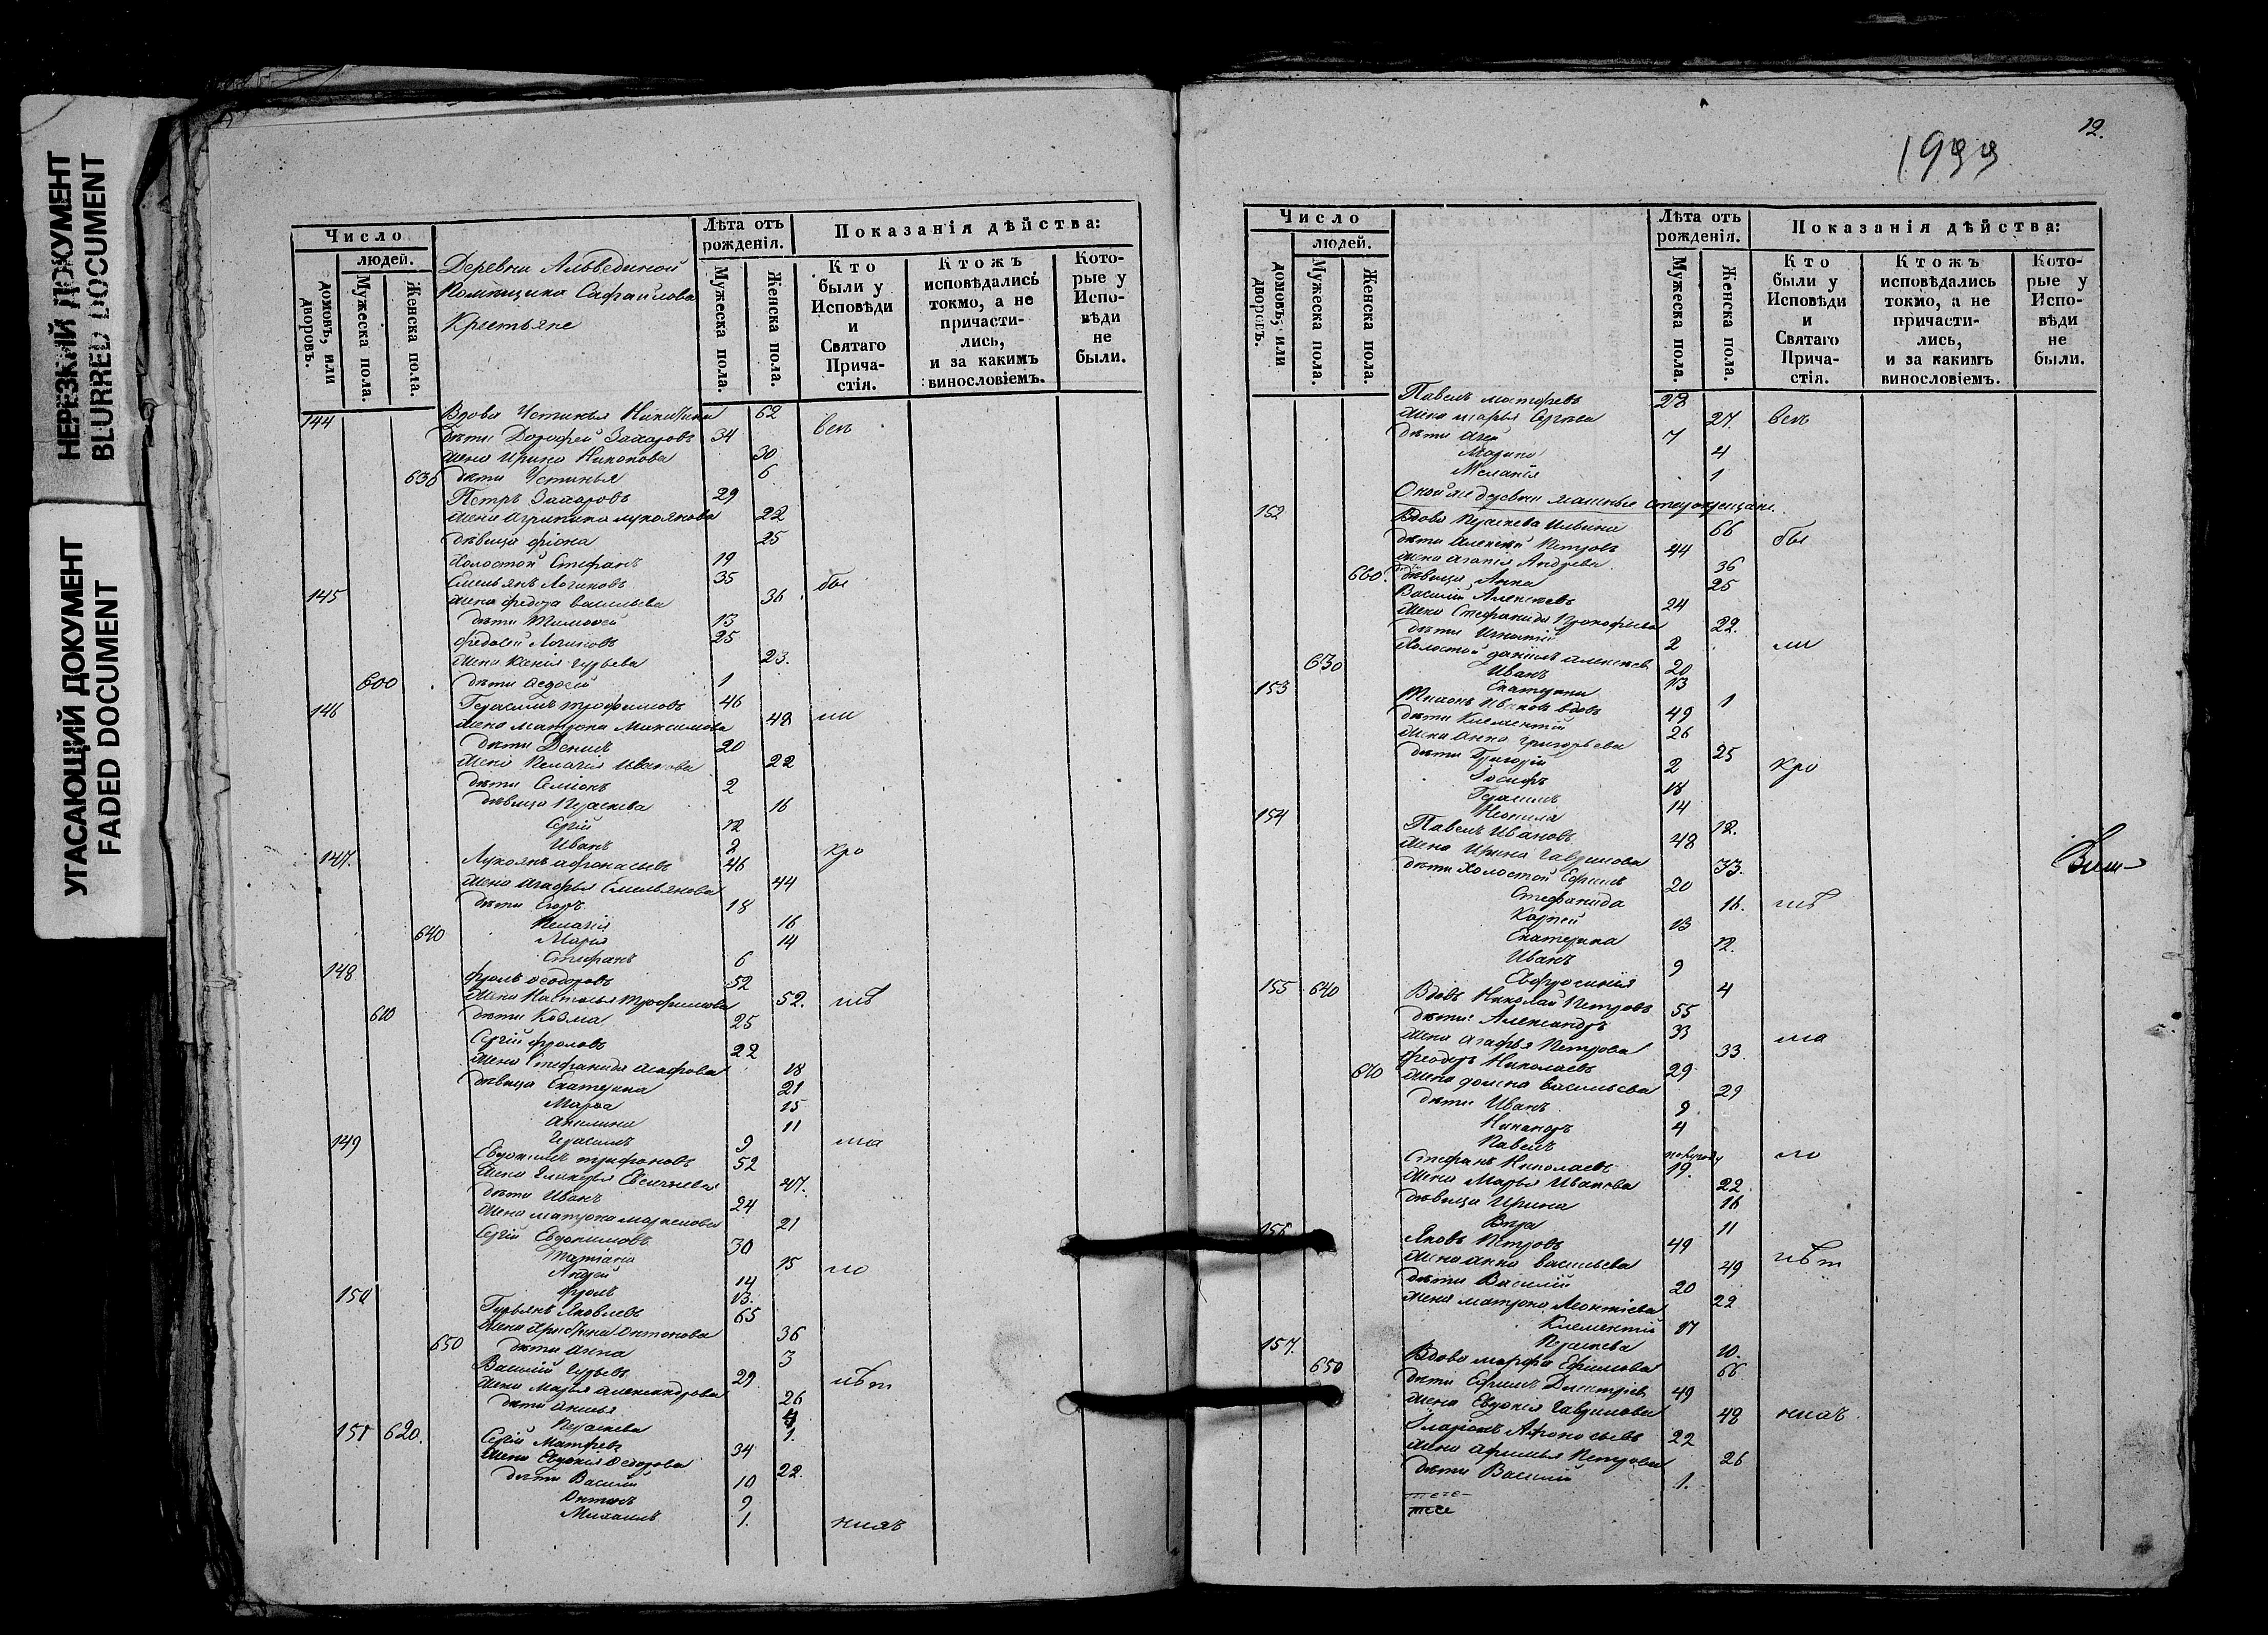 НЕРЕЗКИЙ ДОКУМЕНТ
BLURRED DOCUMENT
УГАСАЮЩИЙ ДОКУМЕНТ
FADED DOCUMENT
Число
домовъ, или дворовъ.
людей.
Мужеска пола.
Женска пола.
Деревни
Крестьяне
Лѣта отъ рожденія.
Мужеска пола.
Женска пола.
Показанія дѣйства:
Кто были у Исповѣди и Святаго Причастія.
Ктожъ исповѣдались токмо, а не причастились, и за какимъ винословіемъ.
Которые у Исповѣди не были.
144 Вдова Устинья 62
дѣти Дорофей Захаровъ 34 всѣ
жена Ирина 30
636 дѣти Устинья 6
Петръ Захаровъ 29
жена Агрипина Лукоянова 22
дѣвица 25
холостой Стефанъ 19
145 Емельянъ Логиновъ 35 бы
жена Федора Васильева 36
дѣти Тимофей 13
Федосей Логиновъ 25
жена Ксенія Гурьева 23.
600 дѣти 1
146 Герасимъ Трофимовъ 46
жена Матрона Максимова 48 ли
дѣти Денисъ 20
жена Пелагія Иванова 22
дѣти Семіонъ 2
дѣвица Праскева 16
Сергій 12
Иванъ 2
147. Лукоянъ Афонасьевъ 46 кро
жена Агафья Емельянова 44
дѣти Егоръ 18
Пелагія 16
640 Марія 14
Стефанъ 6
148 Фролъ Ѳеодоровъ 52
жена Наталья Трофимова 52. мѣ
610 дѣти Козма 25
Сергій Фроловъ 22
жена Стефанида 18
дѣвица Екатерина 21
Марѳа 15
Акилина 11
Герасимъ 9
149 Евдокимъ Трифоновъ 52 ма
жена Гликерья 47.
дѣти Иванъ 24
жена Матрона 21
Сергій Евдокимовъ 30
Татіана 15
Андрей 14 ло
Фролъ 13.
150 Гурьянъ Яковлевъ 65
жена Христина Антонова 36
650 дѣти Анна 3
Василій Гурьевъ 29 лѣт
жена Марья Александрова 26
дѣти 4
Праскева 1.
151 620. Сергій 34
жена Евдокія Ѳедорова 22.
дѣти Василій 10
Антонъ 9
Михаилъ 1. нихъ
12.
Число
домовъ, или дворовъ.
людей.
Мужеска пола.
Женска пола.
Лѣта отъ рожденія.
Мужеска пола.
Женска пола.
Показанія дѣйства:
Кто были у Исповѣди и Святаго Причастія.
Ктожъ исповѣдались токмо, а не причастились, и за какимъ винословіемъ.
Которые у Исповѣди не были.
Павелъ 28
жена Марья Сергѣева 27. всѣ
дѣти 7
Марина 4
Меланія 1
деревни
152 Вдова Праскева Ильина 66
дѣти Алексѣй Петровъ 44 бы
жена Агапія Андреева 36
660. дѣвица Анна 25
Василій Алексѣевъ 24
жена Стефанида Прокофьева 22.
дѣти Игнатій 2
холостой Даніилъ Алексѣевъ 20 ли
630 Иванъ 13
Екатерина 1
153 Тихонъ Ивановъ вдовъ 49
дѣти Климентій 26
жена Анна Григорьева 25
дѣти Григорій 2 кро
Іосифъ 18
Герасимъ 14
Неонила 12.
154 Павелъ Ивановъ 48
жена Ирина Гаврилова 33.
дѣти холостой Ефимъ 20
Стефанида 16. мѣ
Карпей 13
Екатерина 12.
Иванъ 9
Евфросинія 4
155 640 Вдовъ Николай Петровъ 55
дѣти Александръ 33
жена Агафья Петрова 33 ма
Феодоръ Николаевъ 29
670 жена Домна Васильева 29
дѣти Иванъ 9
Никаноръ 4
Павелъ полугоду
Стефанъ Николаевъ 19. ло
жена Марья Иванова 22
дѣвица Ирина 16
Вѣра 11
156 Яковъ Петровъ 49
жена Анна Васильева 49 лѣт
дѣти Василій 20
жена Матрона Леонтіева 22
Климентій 17
Праскева 10.
157. Вдова Марфа Ефимова 66
650 дѣти Ефимъ Дмитріевъ 49
жена Евдокія Гаврилова 48 нихъ
Иларіонъ Афонасьевъ 22
жена Афимья Петрова 26
дѣти Василій 1.